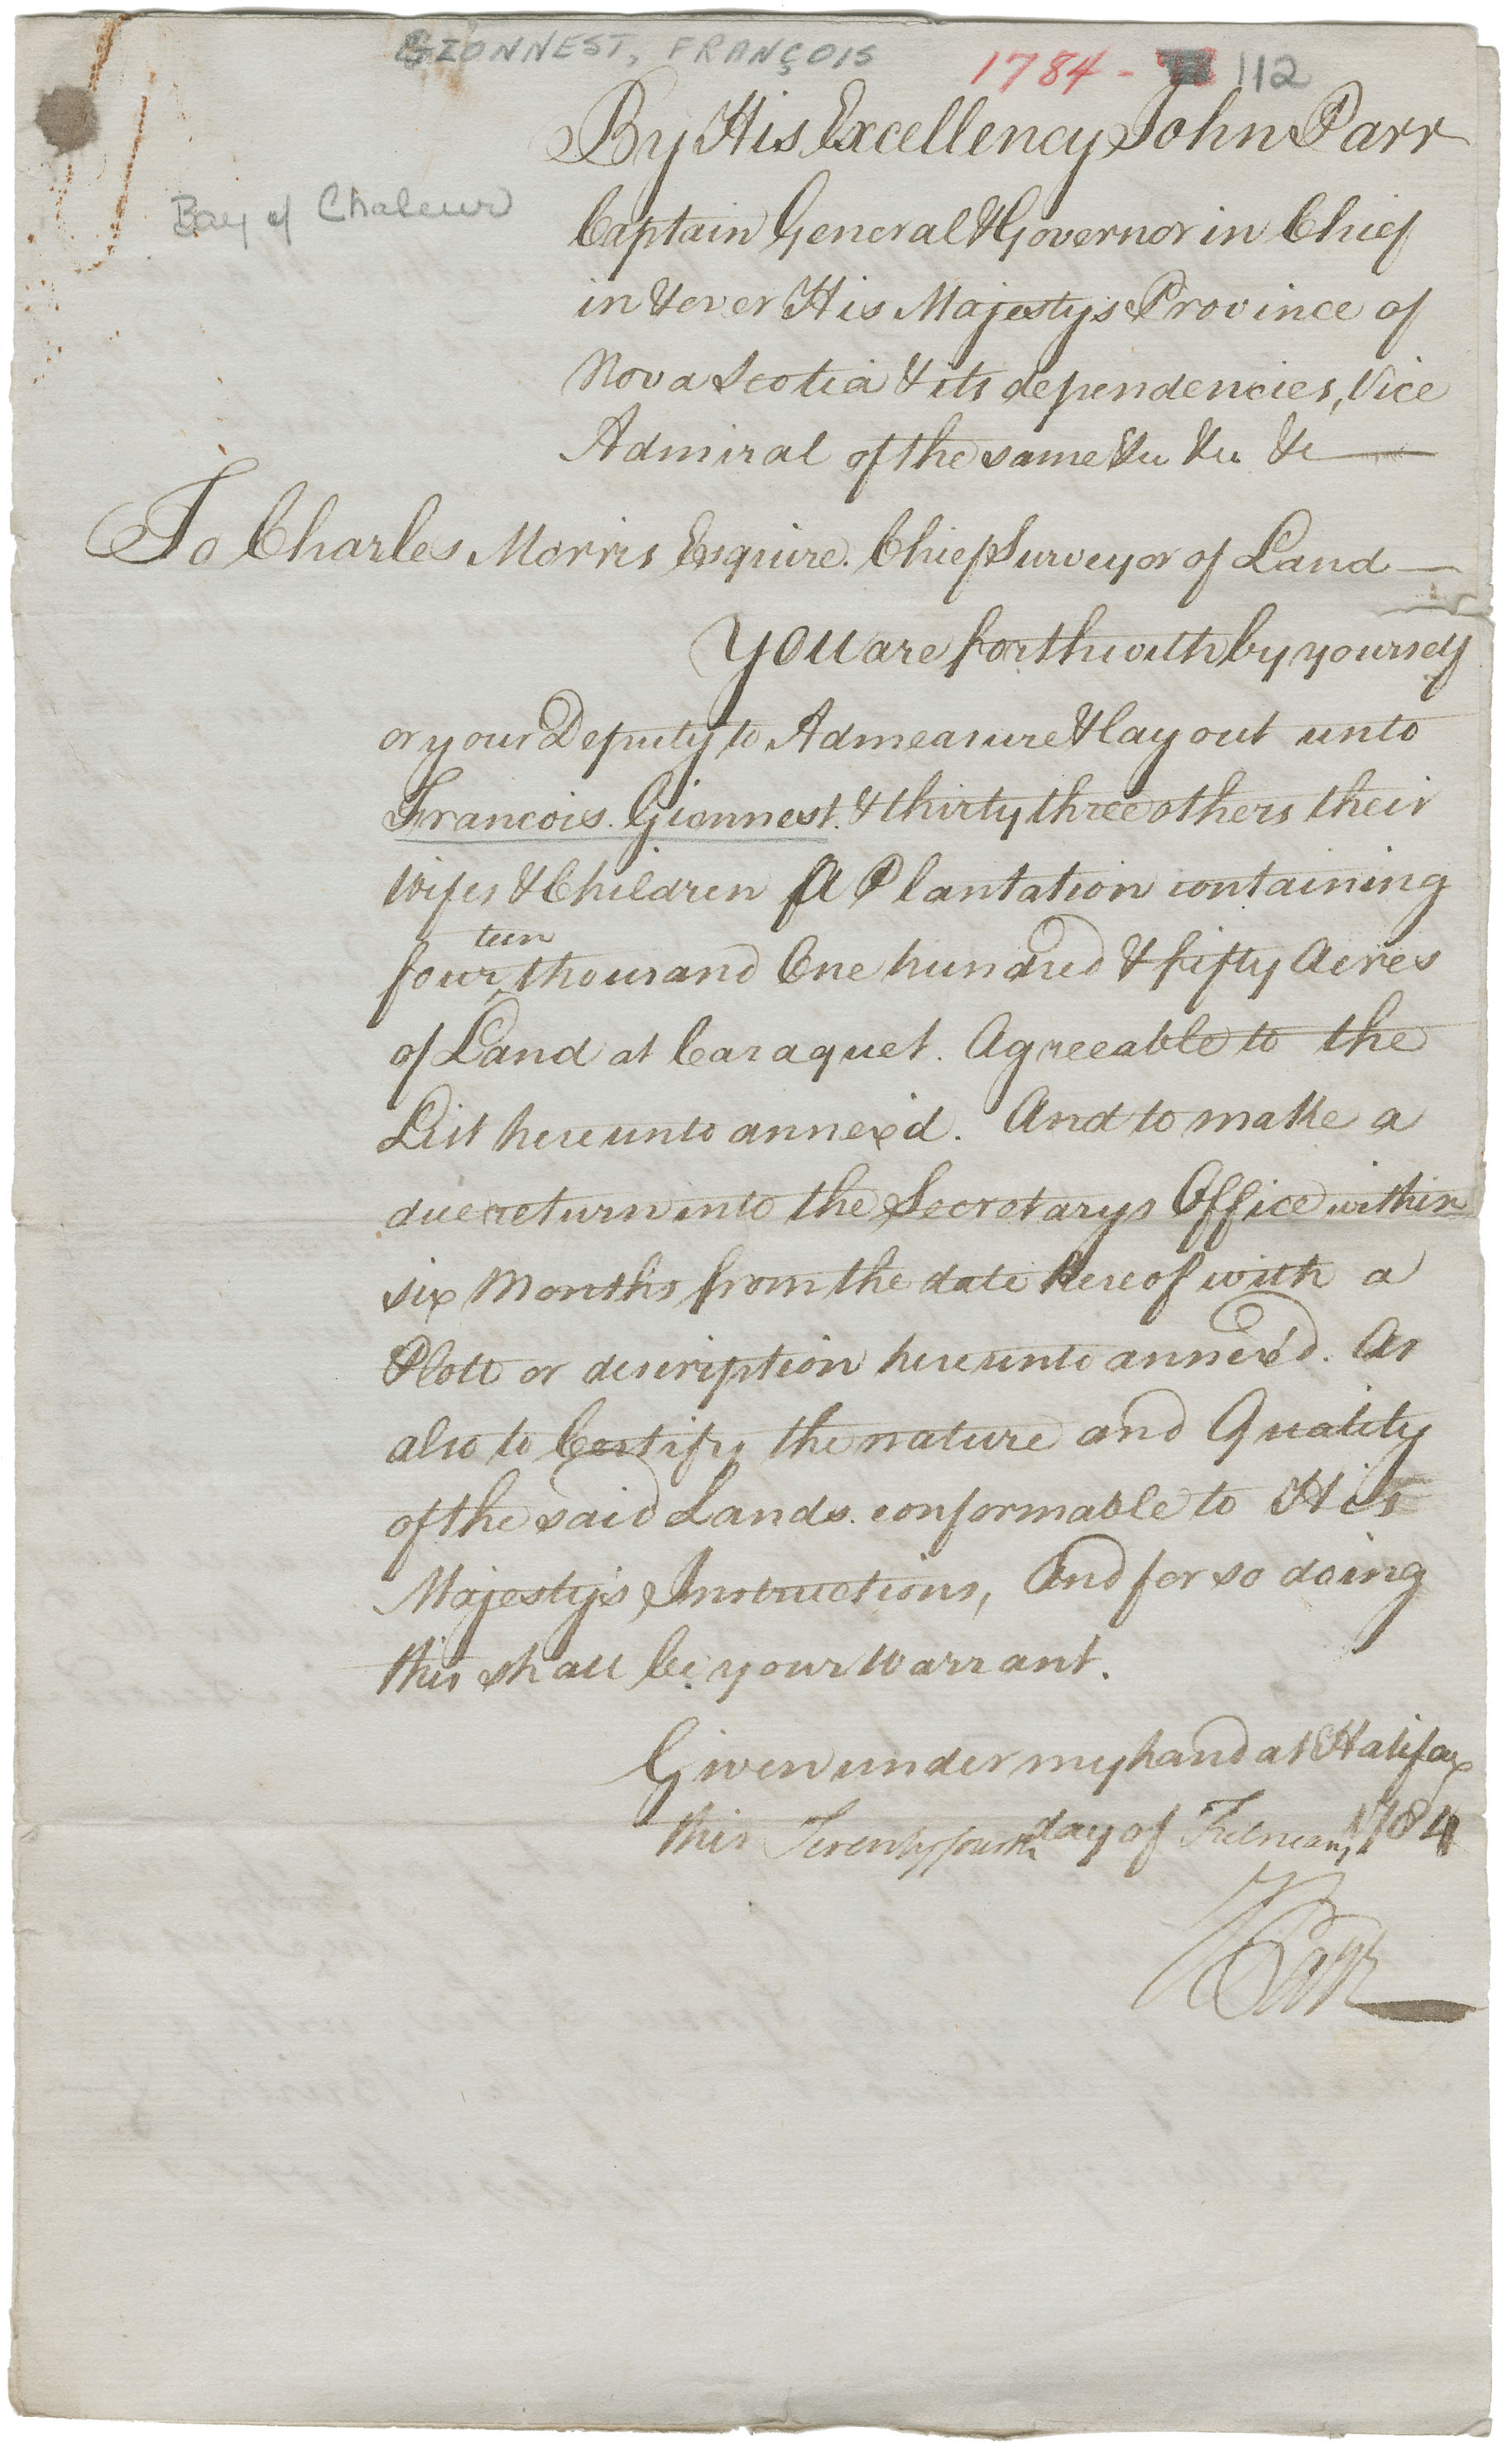 GIONNEST, FRANÇOIS
1784 - 112
Bay of Chaleur
By His Excellency John Parr
Captain General & Governor in Chief
in & over His Majestys Province of
Nova Scotia & its dependencies, Vice
Admiral of the same &c &c &c
To Charles Morris Esquire. Chief Surveyor of Land
You are forthwith by yourself
or your Deputy to Admeasure & lay out unto
Francois. Gionnest. & thirty three others their
Wifes & Children A Plantation containing
teen
four thousand One hundred & fifty Acres
of Land at Caraquet. Agreeable to the
List hereunto annex'd. And to make a
due return into the Secretarys Office within
six Months from the date hereof with a
Plott or description hereunto annex'd. As
also to Certify the nature and Quality
of the said Lands. conformable to His
Majesty's Instructions, And for so doing
this shall be your Warrant.
Given under my hand at Halifax
this Twenty fourth day of February 1784
J Parr